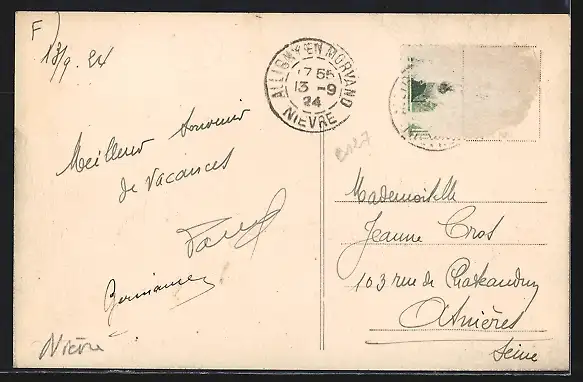 F
13/9 24
ALLIGNY EN MORVAND
17 55
13 - 9
24
NIEVRE
B127
Meilleur souvenir
de vacances
Germaine
Nièvre
Mademoiselle
Jeanne Cros
103 rue de Chateaudun
Asnières
Seine